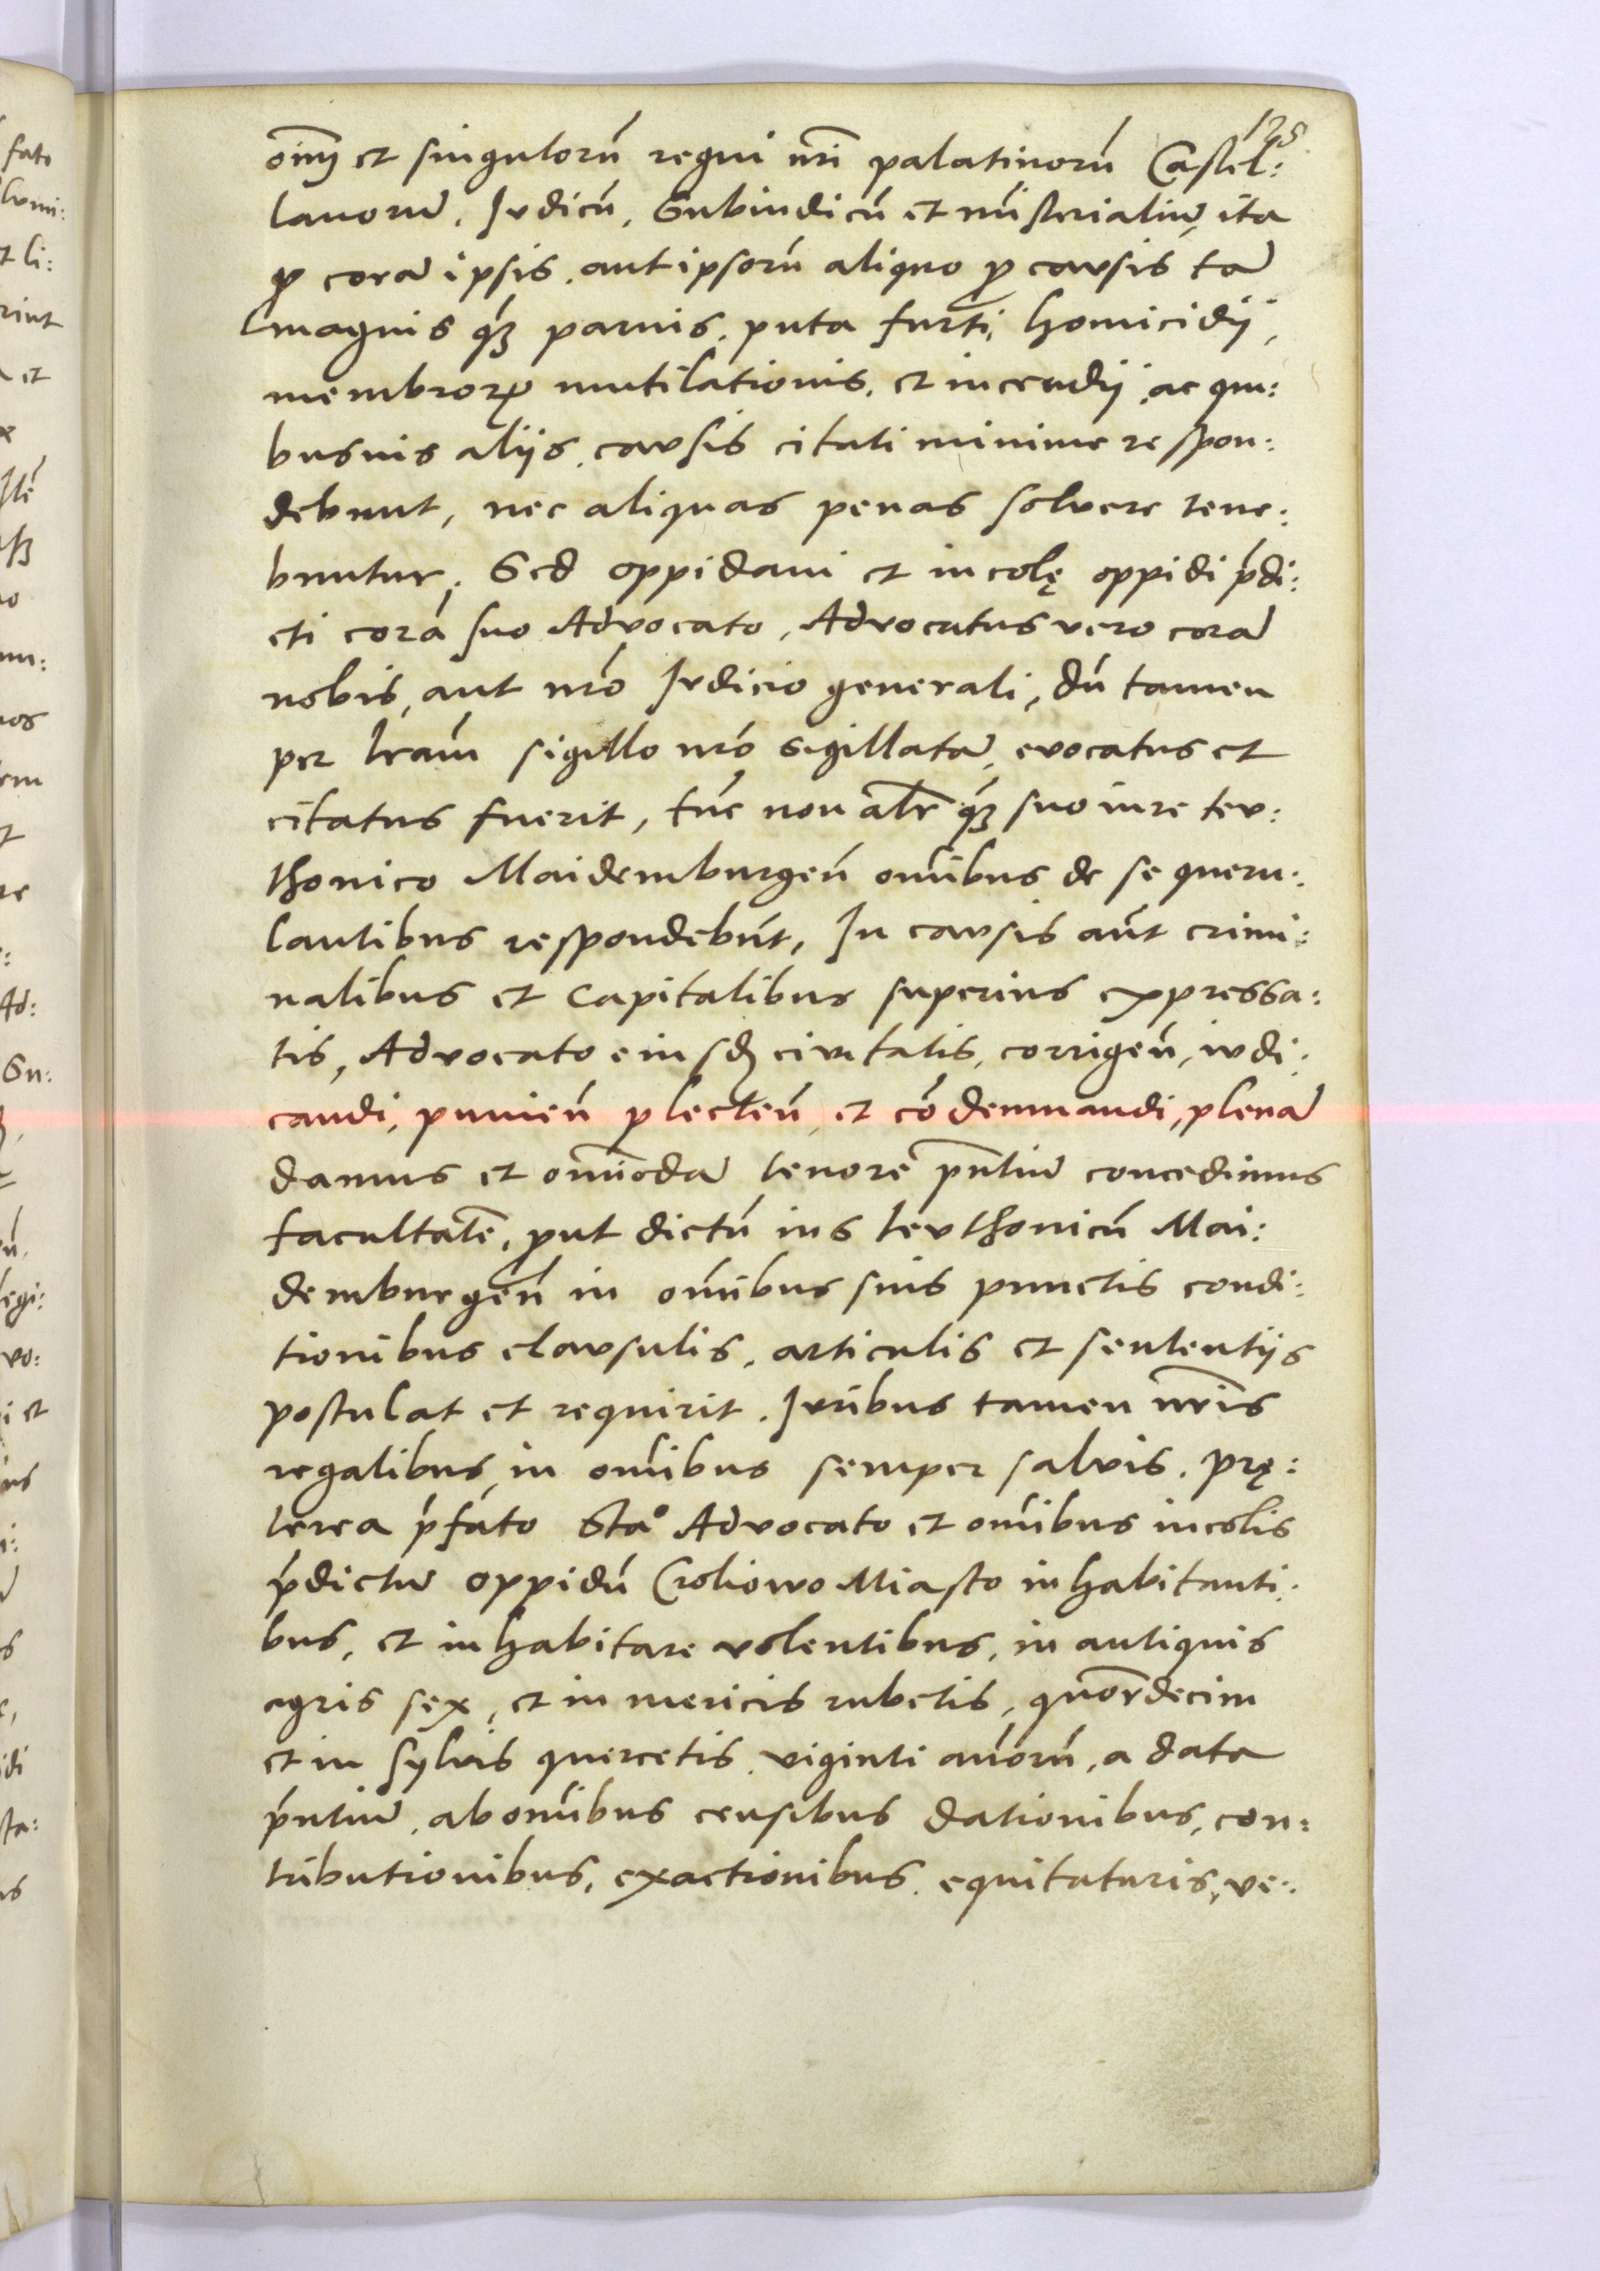 125
oim̄ et singulorū regni nrī palatinorū Castel:
lanorum, Iudicū, Subiudicū et mīsterialium, ita
ꝙ corā ipsis, aut ipsorū aliquo ꝓ causis tā
magnis qꝫ paruis, puta furti, homicidij,
membrorꝝ mutilationis, et incendij, ac qui:
busuis alijs, causis citati minime respon:
debunt, nec aliquas penas soluere tene:
buntur, Sed oppidani et incolę oppidi p̄di:
cti corā suo Advocato, Advocatus vero corā
nobis, aut nrō Iudicio generali, dū tamen
per lrām sigillo nrō sigillatā, evocatus et
citatus fuerit, tūc non alr̄ qꝫ suo iure teu:
thonico Maidemburgeñ om̄ibus de se queru:
lantibus respondebūt, In causis aūt crimi:
nalibus et capitalibus superius expressa:
tis, Advocato eiusd̄ ciuitatis, corrigeñ, iudi:
candi, punieñ plecteñ, et cōdemnandi, plenā
damus et om̄imodā tenorē pn̄tium concedimus
facultatē, ꝓut dictū ius teuthonicū Mai:
demburgeñ in om̄ibus suis punctis condi:
tionibus clausulis, articulis et sententijs
postulat et requirit. Iuribus tamen nrīs
regalibus, in om̄ibus semper saluis. Prę:
terea p̄fato Sta° Advocato et om̄ibus incolis
p̄dictum oppidū Croliowo Miasto inhabitanti:
bus, et inhabitare volentibus, in antiquis
agris sex, et in mericis rubetis, quōrdecim
et in syluis quercetis, viginti anōrū, a data
pn̄tium, ab om̄ibus censibus dationibus, con:
tributionibus, exactionibus, equitaturis, ve: